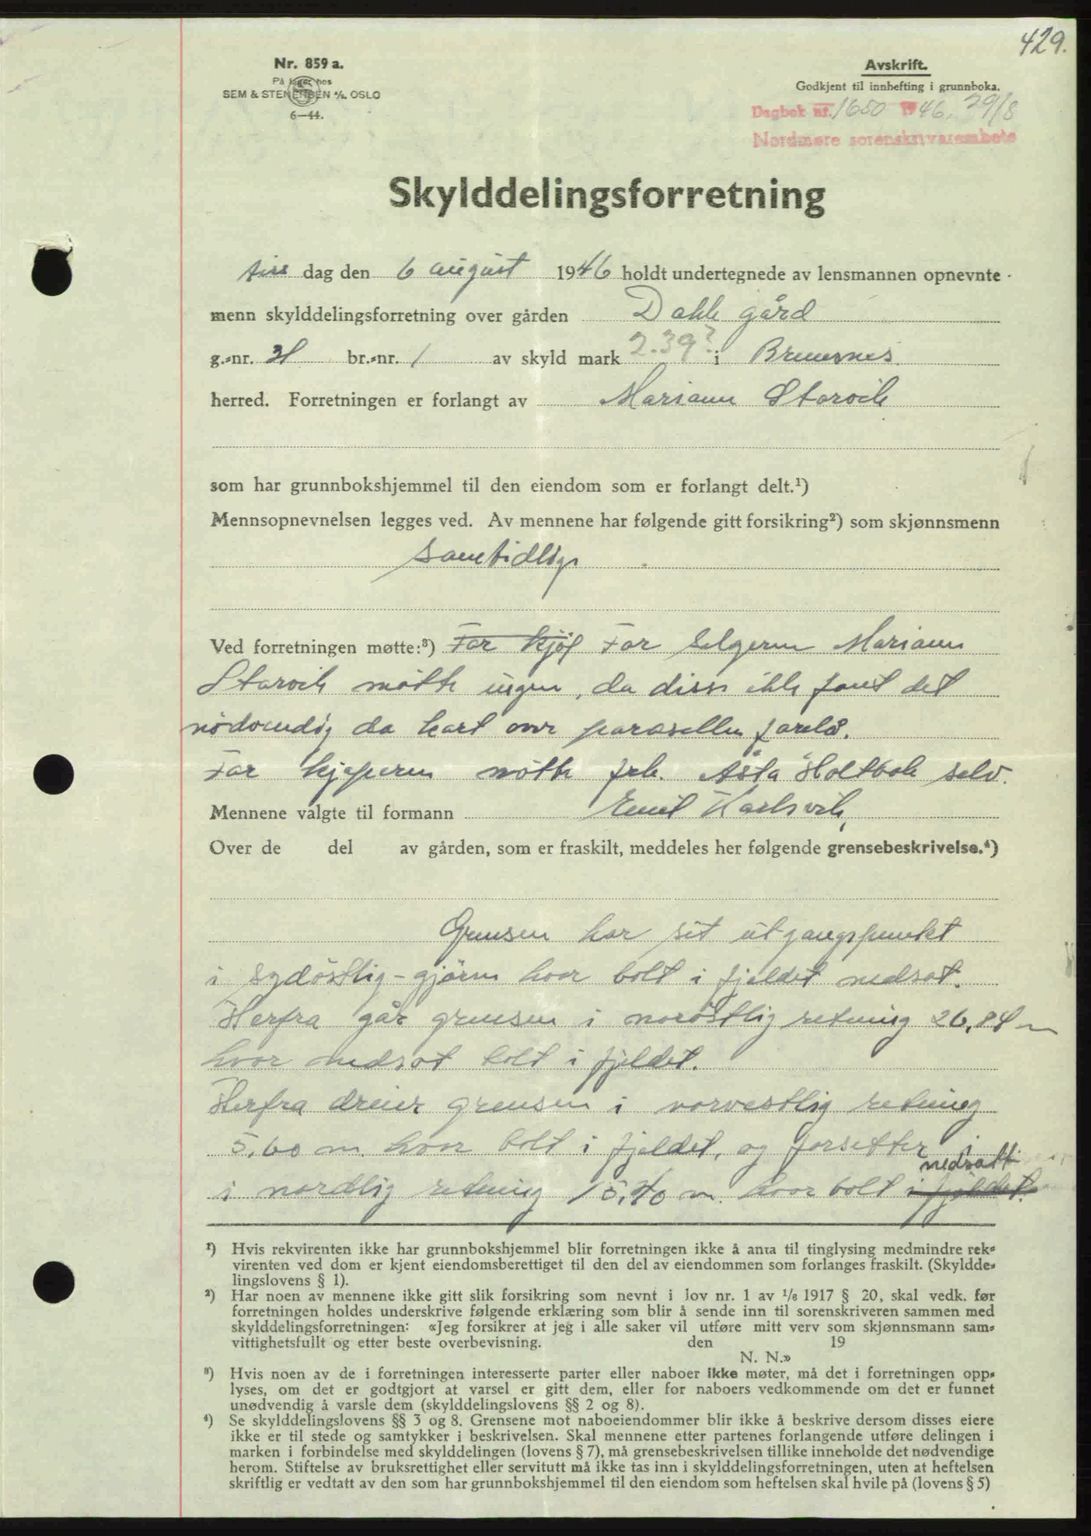 429.
Nr. 859 a.
På lager hos
SEM & STENERSEN A/S, OSLO
6—44.
Avskrift.
Godkjent til innhefting i grunnboka.
Dagbok nr. 1650 1946, 29/8
Nordmøre sorenskriverembete
Skylddelingsforretning
tirs dag den 6 august 1946 holdt undertegnede av lensmannen opnevnte
menn skylddelingsforretning over gården Dahle gård
g.-nr. 31 br.-nr. 1 av skyld mark 2.39? i Bremsnes
herred. Forretningen er forlangt av Mariann Starvik
som har grunnbokshjemmel til den eiendom som er forlangt delt.¹)
Mennsopnevnelsen legges ved. Av mennene har følgende gitt forsikring²) som skjønnsmenn
samtidlige
Ved forretningen møtte:³) For kjøp For selgeren Mariann
Starvik møtte ingen, da disse ikke fant det
nödvendig da kart over parsellen forelå.
For kjøperen møtte frk. Åsta Holtbak selv.
Mennene valgte til formann Emil Karlsvik,
Over de del av gården, som er fraskilt, meddeles her følgende grensebeskrivelse.⁴)
Grensen har sit utgangspunkt
i sydöstlig-gjörne hvor bolt i fjeldet nedsat.
Herfra går grensen i noröstlig retning 26,84 m
hvor nedsat bolt i fjeldet.
Herfra dreier grensen i norvestlig retning
5,60 m. hvor bolt i fjeldet, og forsetter i
i nordlig retning 15,40 m. hvor bolt i fjeldet. nedsatt
¹) Hvis rekvirenten ikke har grunnbokshjemmel blir forretningen ikke å anta til tinglysing medmindre rek-
virenten ved dom er kjent eiendomsberettiget til den del av eiendommen som forlanges fraskilt. (Skyldde-
lingslovens § 1).
²) Har noen av mennene ikke gitt slik forsikring som nevnt i lov nr. 1 av 1/6 1917 § 20, skal vedk. før
forretningen holdes underskrive følgende erklæring som blir å sende inn til sorenskriveren sammen med
skylddelingsforretningen: «Jeg forsikrer at jeg i alle saker vil utføre mitt verv som skjønnsmann sam-
vittighetsfullt og etter beste overbevisning. den 19
N. N.»
³) Hvis noen av de i forretningen interesserte parter eller naboer ikke møter, må det i forretningen opp-
lyses, om det er godtgjort at varsel er gitt dem, eller for naboers vedkommende om det er funnet
unødvendig å varsle dem (skylddelingslovens §§ 2 og 8).
⁴) Se skylddelingslovens §§ 3 og 8. Grensene mot naboeiendommer blir ikke å beskrive dersom disses eiere
ikke er til stede og samtykker i beskrivelsen. Skal mennene etter partenes forlangende utføre delingen i
marken i forbindelse med skylddelingen (lovens § 7), må grensebeskrivelsen tillike inneholde det nødvendige
herom. Stiftelse av bruksrettighet eller servitutt må ikke tas inn i skylddelingsforretningen, uten at heftelsen
skriftlig er vedtatt av den som har grunnbokshjemmel til den eiendom som heftelsen skal hvile på (lovens § 5)